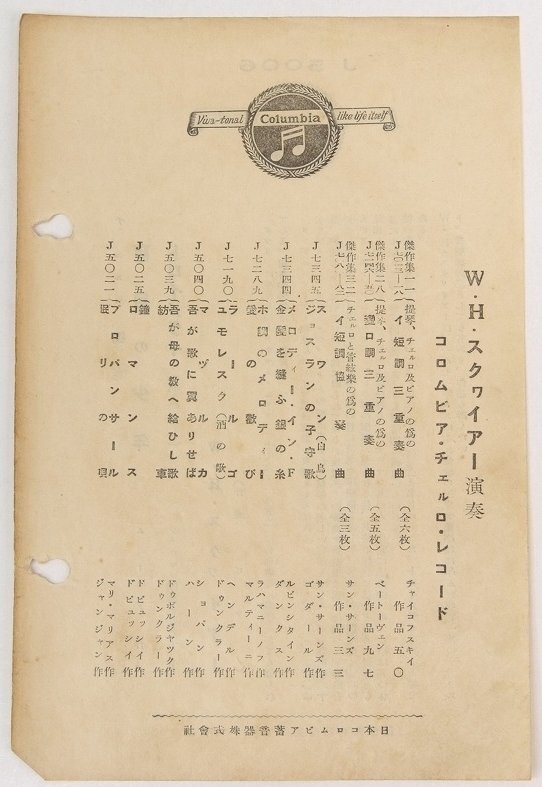 Viva-tonal Columbia like life itself
W・H・スクワイアー演奏
コロムビア・チェルロ・レコード
傑作集二一(提琴、チェルロ及ピアノの爲の
イ短調三重奏曲 (全六枚) チャイコフスキイ 作品五〇
傑作集二八(提琴、チェルロ及ピアノの爲の
變ロ調三重奏曲 (全五枚) ベートーヴェン 作品九七
傑作集三三(チェルロと管絃樂の爲の
イ短調協奏曲 (全三枚) サン・サーンズ 作品三三
J七三四五 スワン(白鳥) サン・サーンズ作
ジョスランの子守歌 ゴダール作
J七三四四 メロディー・イン・F ルビンシタイン作
金髪を縫ふ銀の糸 ダンクス作
J七二八九 ホ調のメロディー ラハマニーノフ作
愛の歡び マルティーニ作
J七一九〇 ラールゴ ヘンデル作
ユモレスク(酒の歌) ドゥンクラー作
J五〇四〇 マヅルカ ショパン作
吾が歌に翼ありせば ハーン作
J五〇三九 吾が母の敎へ給ひし歌 ドゥボルジャツク作
紡車 ドゥンクラー作
J五〇二五 ドビュッシイ作
ロマンス ドビュッシイ作
J五〇二一 プロバンサール マリ・マリアス作
眠りの唄 ジャンジャン作
日本コロムビア蓄音器株式會社